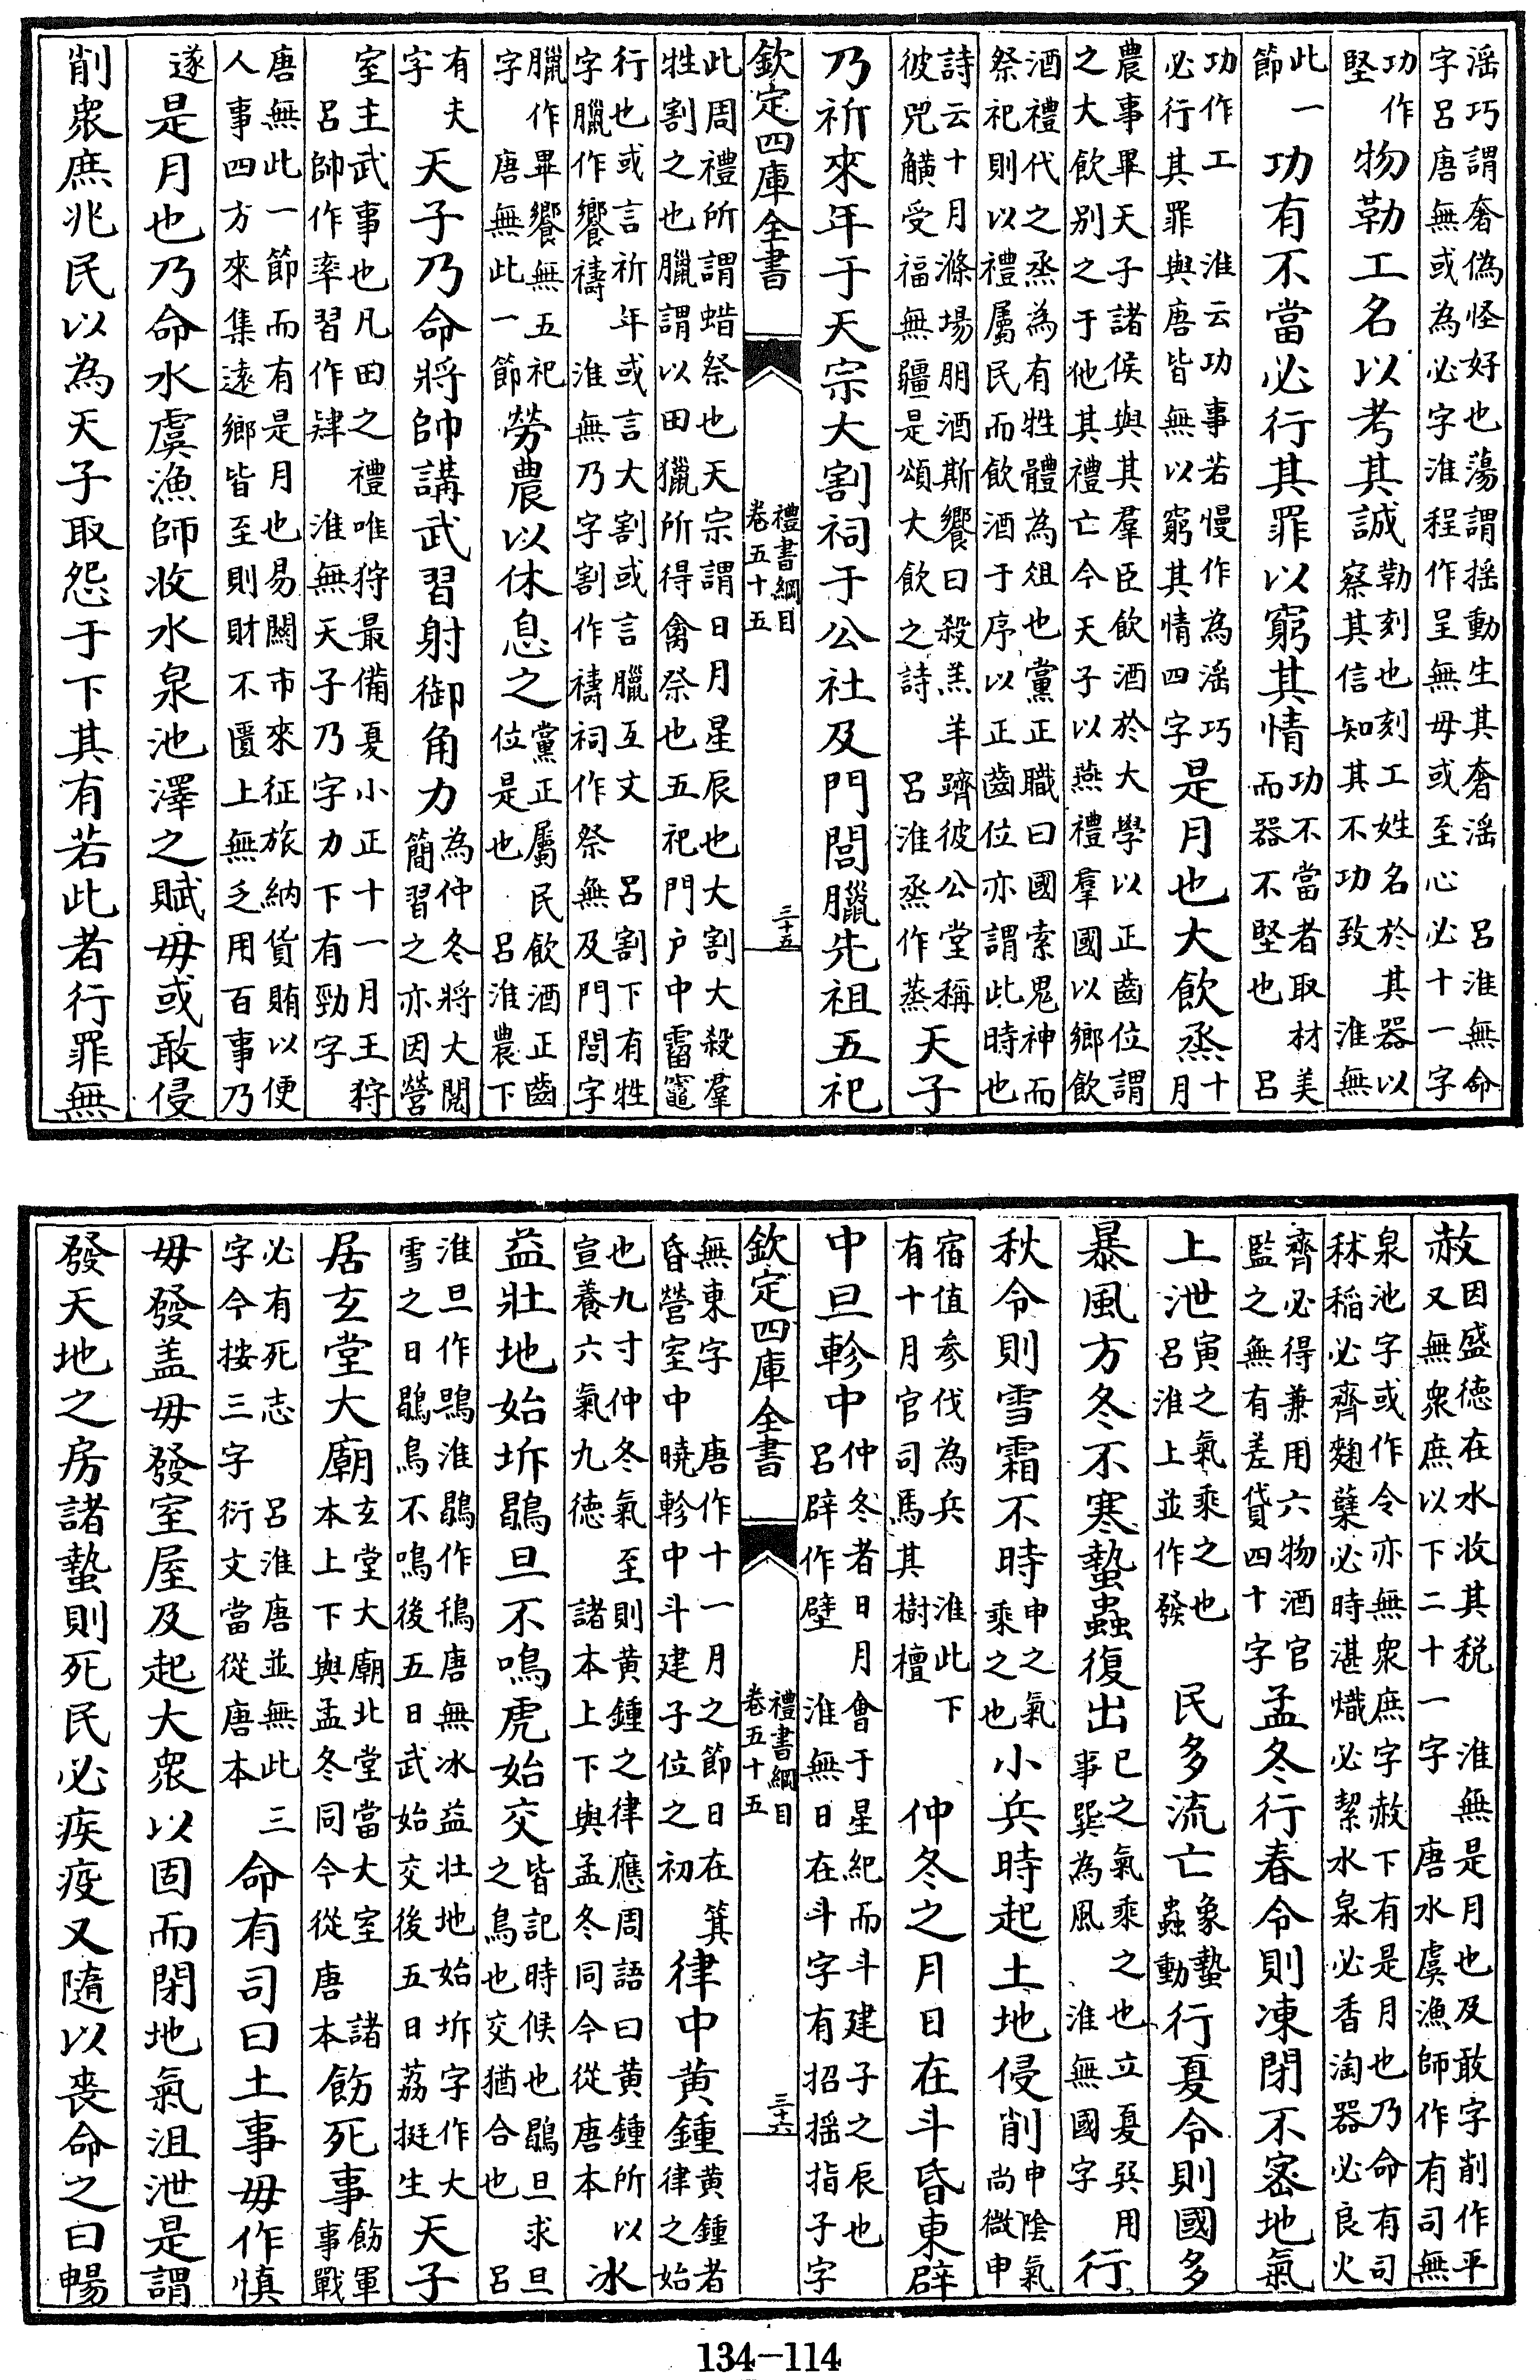 淫巧謂奢偽怪好也蕩謂搖動生其奢淫 呂淮無命
字呂唐無或為必字淮程作呈無毋或至心必十一字
功作堅 物勒工名以考其誠 勒刻也刻工姓名於其器以察其信知其不功致 淮無
此一節 功有不當必行其罪以窮其情 功不當者取材美而器不堅也 呂
功作工 淮云功事若慢作為淫巧必行其罪與唐皆無以窮其情四字 是月也大飲烝 十月
農事畢天子諸侯與其羣臣飲酒於大學以正齒位謂
之大飲别之于他其禮亡今天子以燕禮羣國以鄉飲
酒禮代之烝為有牲體為俎也黨正職曰國索鬼神而
祭祀則以禮屬民而飲酒于序以正齒位亦謂此時也
詩云十月滌場朋酒斯饗曰殺羔羊躋彼公堂稱彼兕觵受福無疆是頌大飲之詩 呂淮烝作蒸 天子
乃祈來年于天宗大割祠于公社及門閭臘先祖五祀
欽定四庫全書 禮書綱目 卷五十五 三十五
此周禮所謂蜡祭也天宗謂日月星辰也大割大殺羣
牲割之也臘謂以田獵所得禽祭也五祀門户中霤竈
行也或言祈年或言大割或言臘互文 呂割下有牲
字臘作饗禱 淮無乃字割作禱祠作祭無及門閭字
臘作畢饗無五祀字 唐無此一節 勞農以休息之 黨正屬民飲酒正齒位是也 呂淮農下
有夫字 天子乃命將帥講武習射御角力 為仲冬將大閱簡習之亦因營
室主武事也凡田之禮唯狩最備夏小正十一月王狩
呂帥作率習作肄 淮無天子乃字力下有勁字
唐無此一節而有是月也易關市來征旅納貨賄以便
人事四方來集遠鄉皆至則財不匱上無乏用百事乃
遂 是月也乃命水虞漁師收水泉池澤之賦毋或敢侵
削衆庶兆民以為天子取怨于下其有若此者行罪無
赦 因盛德在水收其税 淮無是月也及敢字削作平又無衆庶以下二十一字 唐水虞漁師作有司無
泉池字或作令亦無衆庶字赦下有是月也乃命有司
秫稲必齊麴糵必時湛熾必潔水泉必香淘器必良火
齊必得兼用六物酒官監之無有差貸四十字 孟冬行春令則凍閉不密地氣
上泄 寅之氣乘之也 呂淮上並作發 民多流亡 象蟄蟲動 行夏令則國多
暴風方冬不寒蟄蟲復出 巳之氣乘之也立夏巽用事巽為風 淮無國字 行
秋令則雪霜不時 申之氣乘之也 小兵時起土地侵削 申陰氣尚微申
宿值参伐為兵 淮此下有十月官司馬其樹檀 仲冬之月日在斗昏東辟
中旦軫中 仲冬者日月會于星紀而斗建子之辰也 呂辟作壁 淮無日在斗字有招摇指子字
欽定四庫全書 禮書綱目 卷五十五 三十六
無東字 唐作十一月之節日在箕昏營室中曉軫中斗建子位之初 律中黄鍾 黄鍾者律之始
也九寸仲冬氣至則黄鍾之律應周語曰黄鍾所以宣養六氣九德 諸本上下與孟冬同今從唐本 冰
益壯地始坼鶡旦不鳴虎始交 皆記時候也鶡旦求旦之鳥也交猶合也 呂
淮旦作鴠淮鶡作鳱唐無冰益壯地始坼字作大雪之日鶡鳥不鳴後五日武始交後五日荔挺生 天子
居玄堂大廟 玄堂大廟北堂當大室 諸本上下與孟冬同今從唐本 飭死事 飭軍事戰
必有死志 呂淮唐並無此三字今按三字衍文當從唐本 命有司曰土事毋作慎
毋發盖毋發室屋及起大衆以固而閉地氣沮泄是謂
發天地之房諸蟄則死民必疾疫又隨以喪命之曰暢
134-114